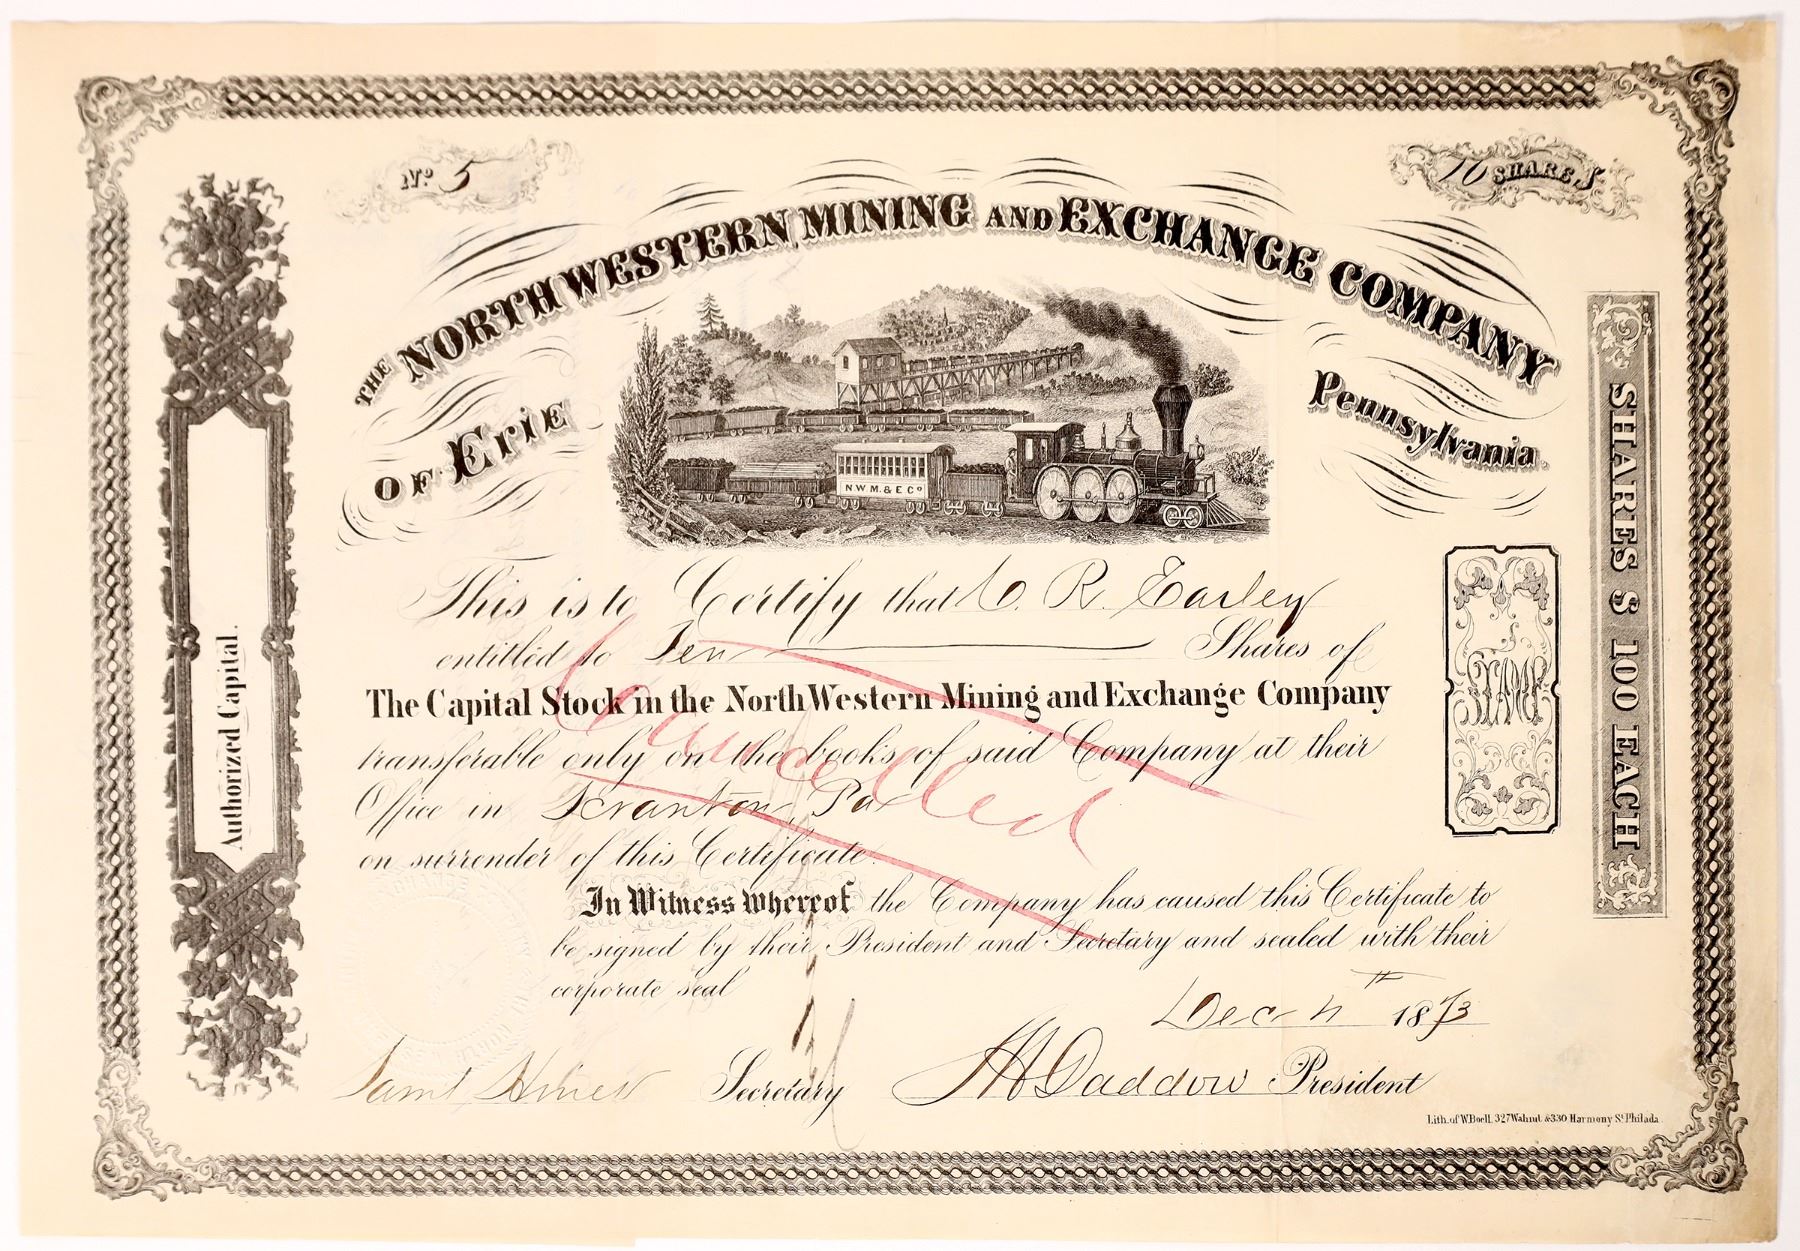 No. 5
10 SHARES
THE NORTH WESTERN MINING AND EXCHANGE COMPANY
OF Erie Pennsylvania.
N W M. & E Co
This is to Certify that C. R. Earley
entitled to Ten Shares of
The Capital Stock in the North Western Mining and Exchange Company
transferable only on the books of said Company at their
Office in Scranton, Pa
on surrender of this Certificate.
Cancelled
In Witness Whereof the Company has caused this Certificate to
be signed by their President and Secretary and sealed with their
corporate seal
Dec 4th 1873
Saml Hines Secretary
Daddow President
Authorized Capital.
STAMP
SHARES $ 100 EACH
Lith. of W. Boell. 327 Walnut & 330 Harmony St. Philada.